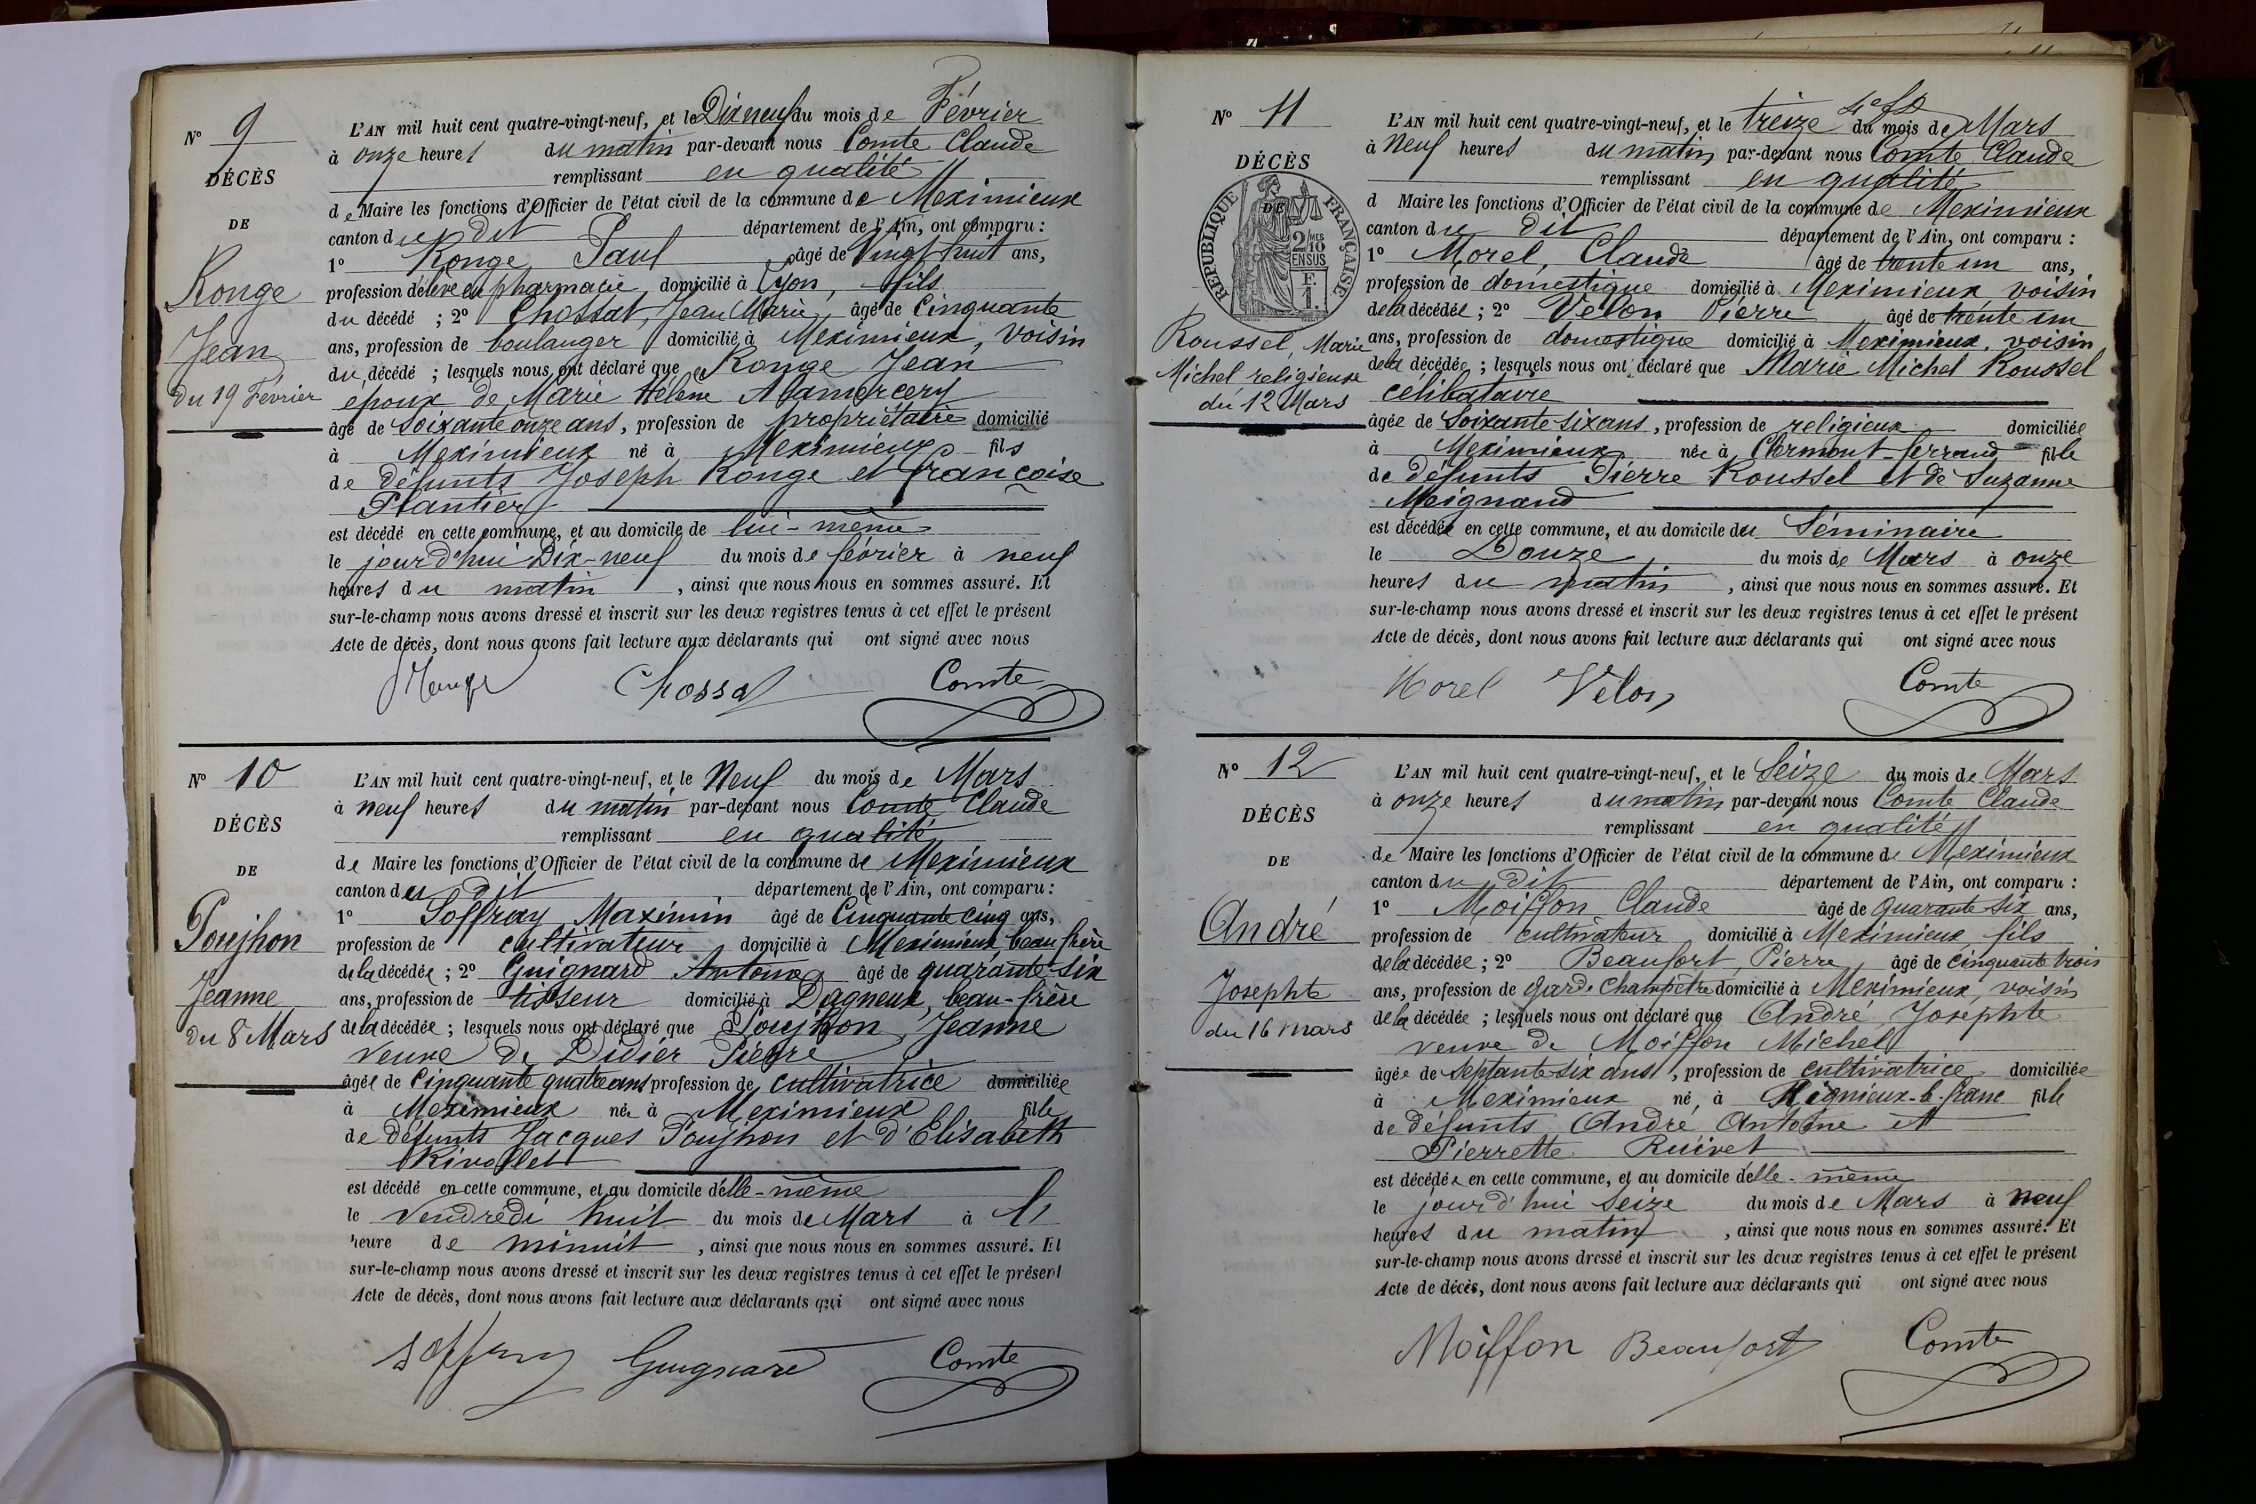 N° 9
DÉCÈS
DE
Ronge
Jean
du 19 Février
L'AN mil huit cent quatre-vingt-neuf, et le Dix neuf du mois de Février
à onze heures du matin par-devant nous Comte Claude
remplissant en qualité
de Maire les fonctions d'Officier de l'état civil de la commune de Meximieux
canton du dit département de l'Ain, ont comparu :
1° Ronge Paul âgé de Vingt huit ans,
profession d'élève en pharmacie, domicilié à Lyon, fils
du décédé ; 2° Chossat, Jean Marie, âgé de Cinquante
ans, profession de boulanger domicilié à Meximieux, voisin
du décédé ; lesquels nous ont déclaré que Ronge Jean
époux de Marie Hélène Alamercery
âgé de soixante onze ans, profession de propriétaire domicilié
à Meximieux né à Meximieux fils
de défunts Joseph Ronge et Françoise
Plantier
est décédé en cette commune, et au domicile de lui-même
le jourd'hui Dix-neuf du mois de février à neuf
heures du matin, ainsi que nous nous en sommes assuré. Et
sur-le-champ nous avons dressé et inscrit sur les deux registres tenus à cet effet le présent
Acte de décès, dont nous avons fait lecture aux déclarants qui ont signé avec nous
Chossat Comte
N° 10
DÉCÈS
DE
Poujhon
Jeanne
du 8 Mars
L'AN mil huit cent quatre-vingt-neuf, et le Neuf du mois de Mars
à neuf heures du matin par-devant nous Comte Claude
remplissant en qualité
de Maire les fonctions d'Officier de l'état civil de la commune de Meximieux
canton du dit département de l'Ain, ont comparu :
1° Soffray Maximin âgé de Cinquante cinq ans,
profession de cultivateur domicilié à Meximieux, beau frère
de la décédée ; 2° Guignard Antoine âgé de quarante-six
ans, profession de tisseur domicilié à Dagneux, beau-frère
de la décédée ; lesquels nous ont déclaré que Poujhon Jeanne
veuve de Didier Pierre
âgée de Cinquante quatre ans profession de cultivatrice domiciliée
à Meximieux née à Meximieux fille
de défunts Jacques Poujhon et d'Elisabeth
Rivollet
est décédé en cette commune, et au domicile d'elle-même
le Vendredi huit du mois de Mars à
heure de minuit, ainsi que nous nous en sommes assuré. Et
sur-le-champ nous avons dressé et inscrit sur les deux registres tenus à cet effet le présent
Acte de décès, dont nous avons fait lecture aux déclarants qui ont signé avec nous
Soffray Guignard Comte
N° 11
DÉCÈS
DE
RÉPUBLIQUE FRANÇAISE
2/10MES
EN SUS
Roussel, Marie
Michel religieuse
du 12 Mars
L'AN mil huit cent quatre-vingt-neuf, et le treize du mois de Mars
à Neuf heures du matin par-devant nous Comte Claude
remplissant en qualité
d Maire les fonctions d'Officier de l'état civil de la commune de Meximieux
canton du dit département de l'Ain, ont comparu :
1° Morel, Claude âgé de trente un ans,
profession de domestique domicilié à Meximieux voisin
de la décédée ; 2° Velon Pierre âgé de trente un
ans, profession de domestique domicilié à Meximieux, voisin
de la décédée ; lesquels nous ont déclaré que Marie Michel Roussel
célibataire
âgée de Soixante-six ans, profession de religieux domiciliée
à Meximieux née à Clermont-ferrand fille
de défunts Pierre Roussel et de Suzanne
Meignand
est décédée en cette commune, et au domicile du Séminaire
le Douze du mois de Mars à onze
heures du matin, ainsi que nous nous en sommes assuré. Et
sur-le-champ nous avons dressé et inscrit sur les deux registres tenus à cet effet le présent
Acte de décès, dont nous avons fait lecture aux déclarants qui ont signé avec nous
Morel Velon Comte
N° 12
DÉCÈS
DE
André
Josephte
du 16 mars
L'AN mil huit cent quatre-vingt-neuf, et le Seize du mois de Mars
à onze heures du matin par-devant nous Comte Claude
remplissant en qualité
de Maire les fonctions d'Officier de l'état civil de la commune de Meximieux
canton du dit département de l'Ain, ont comparu :
1° Moiffon Claude âgé de quarante six ans,
profession de cultivateur domicilié à Meximieux, fils
de la décédée ; 2° Beaufort, Pierre âgé de cinquante trois
ans, profession de garde champêtre domicilié à Meximieux, voisin
de la décédée ; lesquels nous ont déclaré que André Josephte
veuve de Moiffon Michel
âgée de septante-six ans, profession de cultivatrice domiciliée
à Meximieux né, à Rignieux-le-franc fille
de défunts André Antoine et
Pierrette Ruivet
est décédée en cette commune, et au domicile d'elle-même
le jourd'hui Seize du mois de Mars à neuf
heures du matin, ainsi que nous nous en sommes assuré. Et
sur-le-champ nous avons dressé et inscrit sur les deux registres tenus à cet effet le présent
Acte de décès, dont nous avons fait lecture aux déclarants qui ont signé avec nous
Moiffon Beaufort Comte